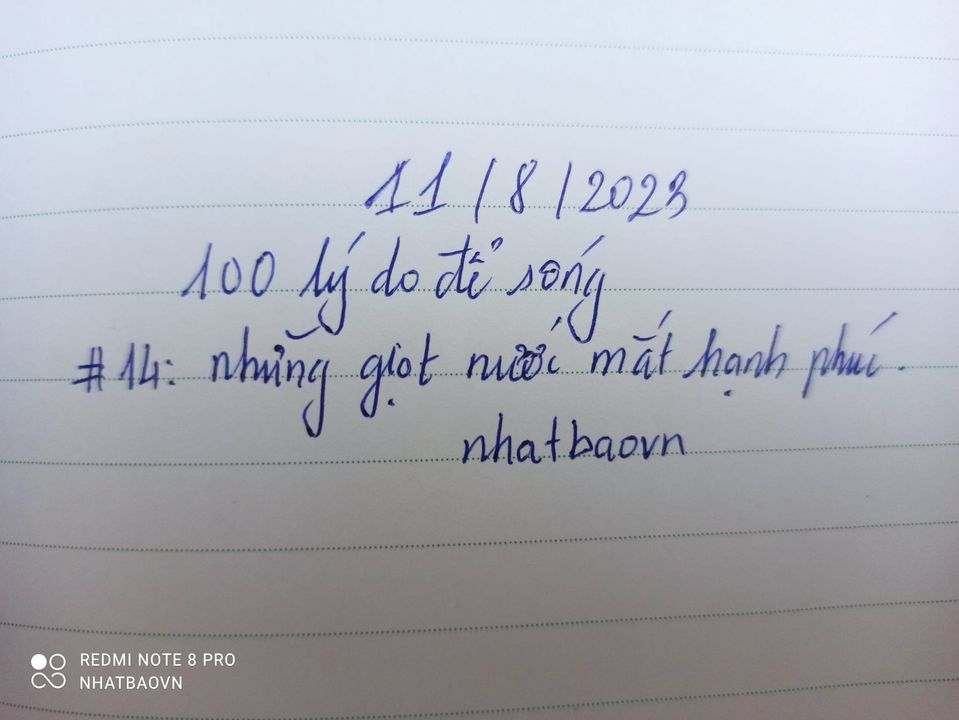 11/8/2023
100 lý do để sống
#14: những giọt nước mắt hạnh phúc.
nhatbaovn
REDMI NOTE 8 PRO
NHATBAOVN